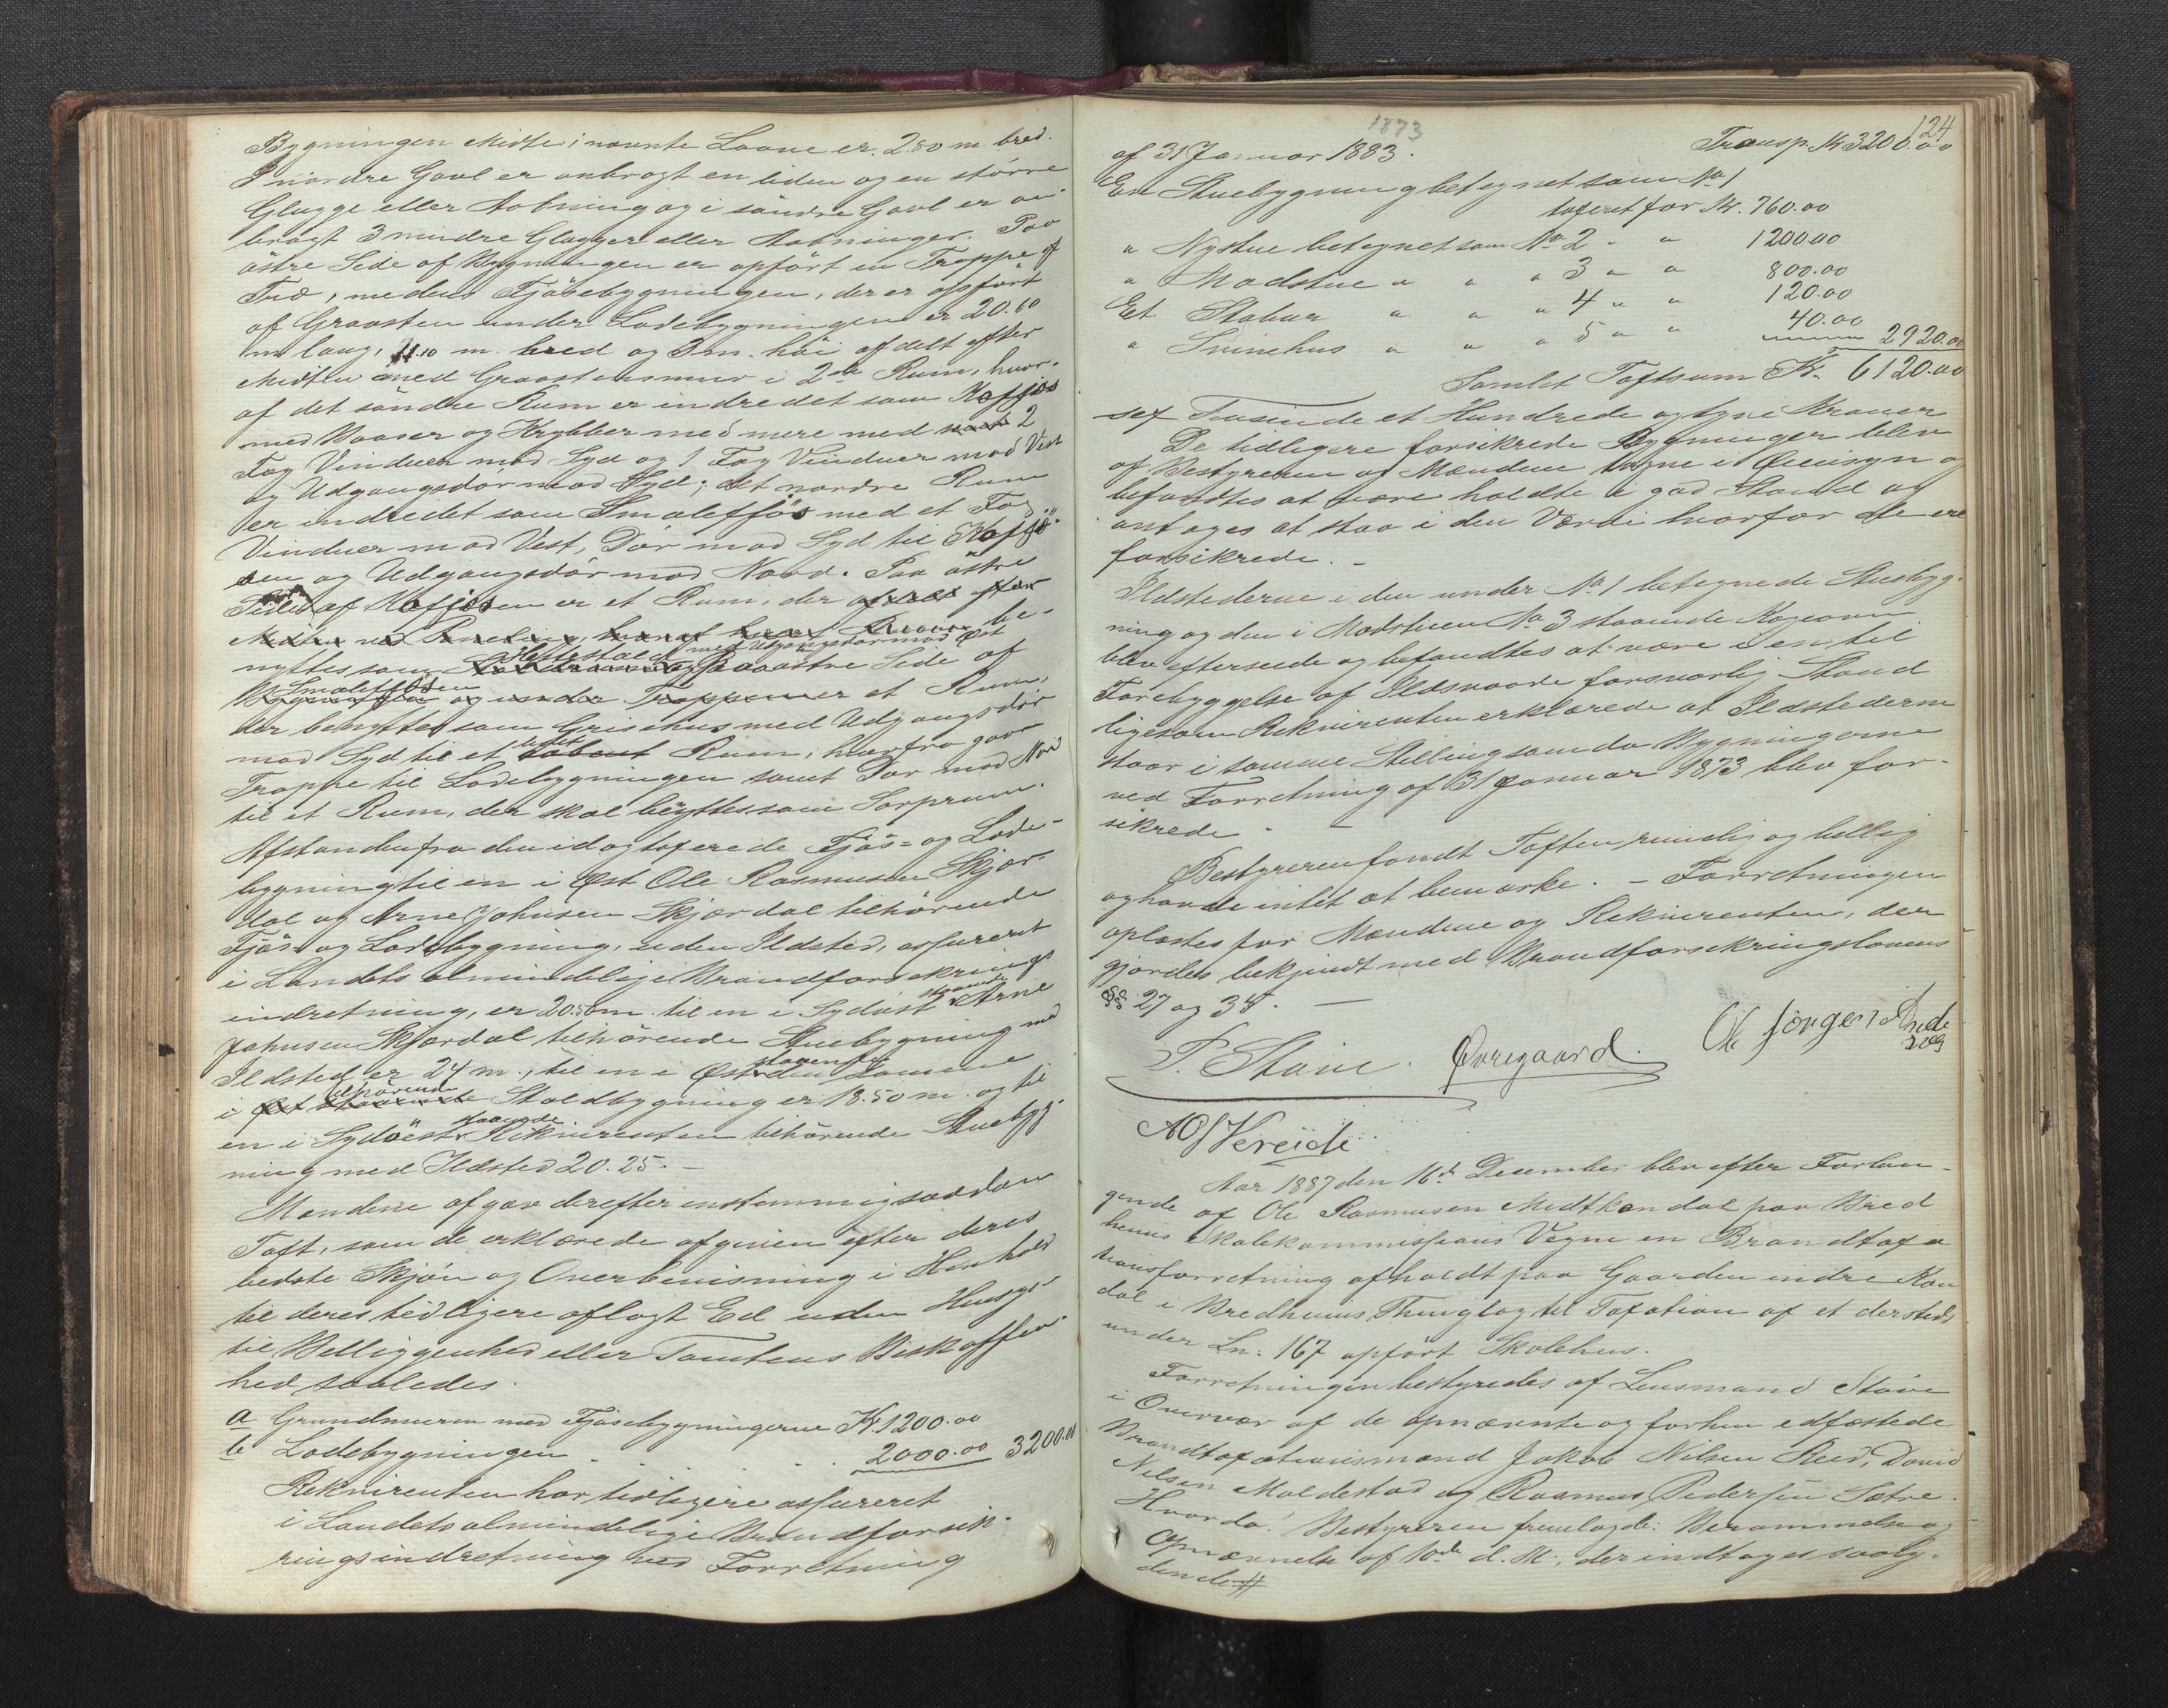 Bygningen Midte; nævnte Laave er 2.80 m. bred.
I nordre Gavl er anbragt en liden og en större
Glugge eller Aabning og i söndre Gavl er an
bragt 3 mindre Glugger eller Aabninger. Paa
östre Side af Bygningen er opfört en Trappe af
Træ, medens Fjösebygningen, der er opfört
af Graasten under Ladebygningen er 20.60
m lang, 11.10 m. bred og 3 m. höi afdelt efter
Midten med Graastensmur i 2de Rum, hvor-
af det söndre Rum er indredet som Kofjös
med Baaser og Krybber med mere med 2
Fag Vinduer mod Syd og 1 Fag Vinduer mod Vest
og Udgangsdör mod Syd; det nordre Rum
er indredet som Smalefjös med et Fag
Vinduer mod Vest, Dör mod Syd til Kofjö-
sen og Udgangsdör mod Nord. Paa östre
Side af Kofjösen er et Rum, der efter
Midten ved Paneling, be-
Hestestald med Udgangsdör mod Öst
nyttes som og Paa östre Side af
Smalefjösen
Bygningen og under Trappen er et Rum,
der benyttes som Grisehus med Udgangsdör
mod Syd til et Rum, hvorfra gaar
Trappe til Ladebygningen samt Dör mod Nord
til et Rum, der skal benyttes som Sörprum.
Afstanden fra den idag taxerede Fjös- og Lade-
bygning til en i Öst Ole Rasmusen Skjær-
dal og Arne Johnsen Skjærdal tilhörende
Fjös og Ladebygning, uden Ildsted, assureret
i Landets almindelige Brandforsikrings
indretning, er 20.50 m. til en i Sydöst staaende Arne
Johnsen Skjærdal tilhörende Stuebygning med
Ildsted er 24 m., til en i Öst staaende samme
tilhörende
Staldbygning er 18.50 m. og til
en i Sydöst staaende Rekvirenten tilhörende Stuebyg-
ning med Ildsted 20.25. –
Mændene afgav derefter enstemmig saadan
Taxt, som de erklærede afgiven efter deres
bedste Skjön og Overbevisning i Henhold
til deres tidligere aflagt Ed uden Hensyn
til Belliggenhed eller Tomtens Beskaffen-
hed saaledes.
a Grundmuren med Fjösebygningerne Kr. 1200.00
b Ladebygningen . . . . 2000.00 3200.00
Rekvirenten har tidligere assureret
i Landets almindelige Brandforsik-
ringsindretning ved Forretning
124
1873
Transp. Kr 3200.00
af 31 Januar 1883.
En Stuebygning betegnet som No 1
taxeret for Kr. 760.00
" Nystue betegnet som No 2 " " 1200.00
" Madstue " " " 3 " " 800.00
Et Stabur " " " 4 " " 120.00
" Svinehus " " " 5 " " 40.00
2920.00
Samlet Taxtsum Kr. 6120.00
sex Tusinde et Hundrede og tyve Kroner
De tidligere forsikrede Bygninger blev
af Bestyreren og Mændene tagne i Öiensyn og
befandtes at være holdte i god Stand og
antages at staa i den Værdi hvorfor de ere
forsikrede. –
Ildstederne i den under No 1 betegnede Stuebyg-
ning og den i Madstuen No 3 staaende Kogeovn
blev efterseede og befandtes at være i en til
Forebyggelse af Ildsvaade forsvarlig Stand
ligesom Rekvirenten erklærede at Ildstederne
staar i samme Stilling som da Bygningerne
ved Forretning af 31 Januar 1873 blev for-
sikrede. –
Bestyreren fandt Taxten rimelig og billig
og havde intet at bemærke. – Forretningen
oplæstes for Mændene og Rekvirenten, der
gjordes bekjendt med Brandforsikringslovens
§§ 27 og 35. –
P. Støve. Øvregaard. Ole Jørgensen
AO Vereide
Aar 1887 den 16de December blev efter Forlan-
gende af Ole Rasmusen Midtkandal paa Bred
heims Skolekommissions Vegne en Brandtaxa
tionsforretning afholdt paa Gaarden indre Kan
dal i Bredheims Thinglag til Taxation af et dersteds
under Ln: 167 opfört Skolehus.
Forretningen bestyredes af Lensmand Støve
i Overvær af de opnævnte og forhen edfæstede
Brandtaxationsmænd Jakob Nilsen Reed, David
Nilsen Moldestad og Rasmus Pedersen Sætre.
Hvorda! Bestyreren fremlagde: Berammelse og
Opnævnelse af 10de d. M., der indtages saaly-
dende #